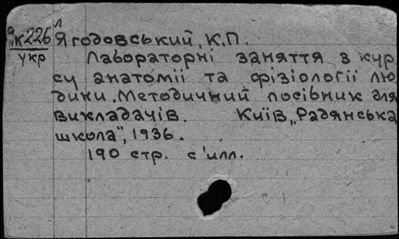 "к226 л Ягодовський, К.П.
укр Лабораторні заняття з кур
су анатомії та фізіології лю
дини. Методичний посібник для
викладачів. Київ, „Радянська
школа", 1936.
190 стр. с ілл.